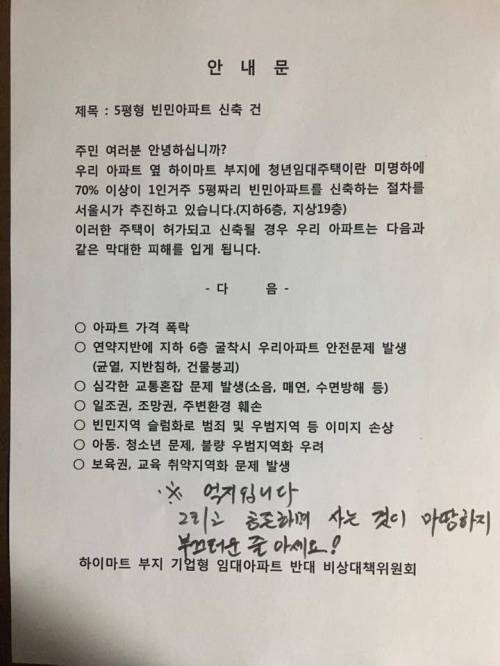 안 내 문
제목 : 5평형 빈민아파트 신축 건
주민 여러분 안녕하십니까?
우리 아파트 옆 하이마트 부지에 청년임대주택이란 미명하에
70% 이상이 1인거주 5평짜리 빈민아파트를 신축하는 절차를
서울시가 추진하고 있습니다.(지하6층, 지상19층)
이러한 주택이 허가되고 신축될 경우 우리 아파트는 다음과
같은 막대한 피해를 입게 됩니다.
- 다 음 -
○ 아파트 가격 폭락
○ 연약지반에 지하 6층 굴착시 우리아파트 안전문제 발생
(균열, 지반침하, 건물붕괴)
○ 심각한 교통혼잡 문제 발생(소음, 매연, 수면방해 등)
○ 일조권, 조망권, 주변환경 훼손
○ 빈민지역 슬럼화로 범죄 및 우범지역 등 이미지 손상
○ 아동. 청소년 문제, 불량 우범지역화 우려
○ 보육권, 교육 취약지역화 문제 발생
※ 억지입니다
그리고 공존하며 사는 것이 마땅하지
부끄러운 줄 아세요!
하이마트 부지 기업형 임대아파트 반대 비상대책위원회